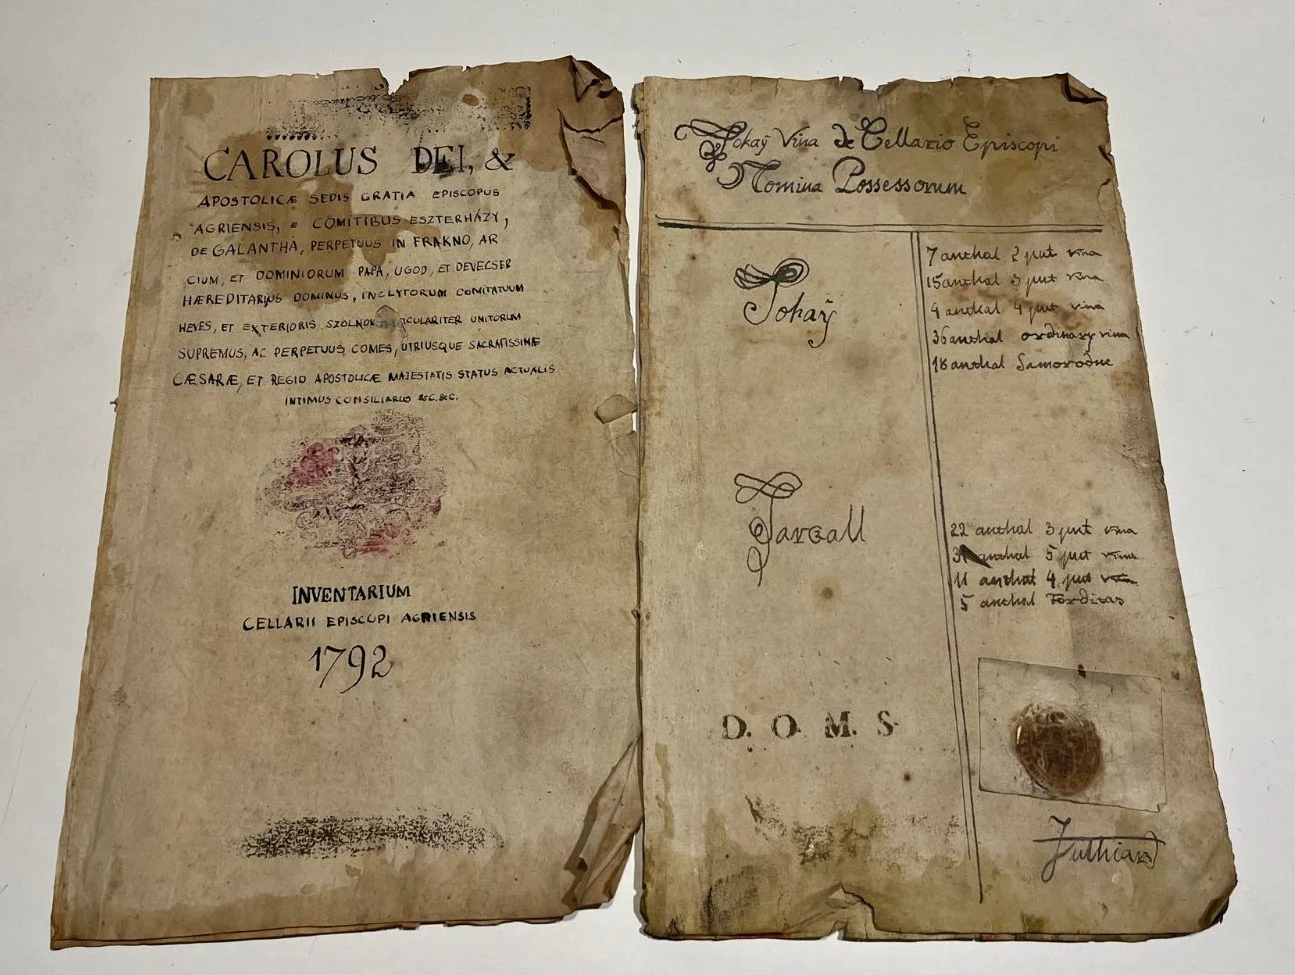 CAROLUS DEI, &
APOSTOLICÆ SEDIS GRATIA EPISCOPUS
AGRIENSIS, e COMITIBUS ESZTERHÁZY,
DE GALANTHA, PERPETUUS IN FRAKNO, AR
CIUM, ET DOMINIORUM PAPA, UGOD, ET DEVECSER
HÆREDITARIUS DOMINUS, INCLYTORUM COMITATUUM
HEVES, ET EXTERIORIS SZOLNOK UNITORUM
SUPREMUS, AC PERPETUUS COMES, UTRIUSQUE SACRATISSIMÆ
CÆSARÆ, ET REGIO APOSTOLICÆ MAJESTATIS STATUS ACTUALIS
INTIMUS CONSILIARUS &C.&C.
INVENTARIUM
CELLARII EPISCOPI AGRIENSIS
1792
Tokaÿ Vina de Cellario Episcopi
Nomina Possessorum
Tokaÿ
7 anthal 2 put vina
15 anthal 3 put vina
4 put vina
36 anthal ordinary vina
18 anthal Samorodne
Tarcall
22 anthal 3 put vina
anthal 5 put vina
11 anthal 4 put vina
5 anthal Forditas
D. O. M. S.